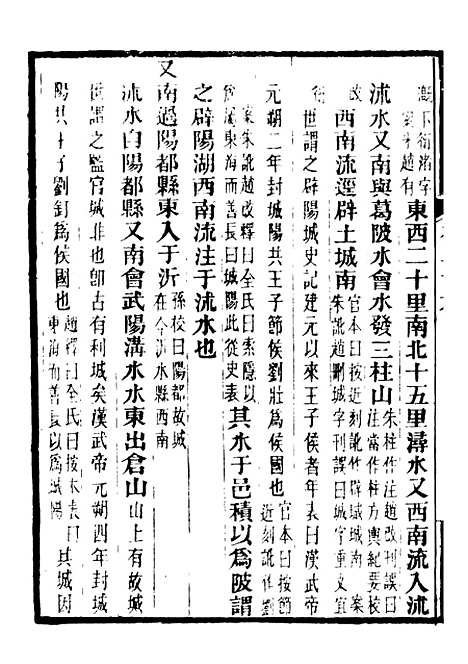 下衍洛字
東西二十里南北十五里潯水又西南流入沭
沭水又南與葛陂水會水發三柱山
朱柱作注趙改刊誤曰
注當作柱方輿紀要校
改
西南流逕辟土城南
官本曰按近刻訛竹辟城南案
朱訛趙刪城字刊誤曰城字重文宜
衍
世謂之辟陽城史記建元以來王子侯者年表曰漢武帝
元朔二年封城陽共王子節侯劉壯為侯國也
官本曰按節
近刻訛作劉
案朱訛趙改釋曰全氏曰索隱曰
屬東海而善長曰城陽此從史表
其水于邑積以為陂謂
之辟陽湖西南流注于沭水也
又南過陽都縣東入于沂
孫校曰陽都故城
在今沂水縣西南
沭水自陽都縣又南會武陽溝水水東出倉山山上有故城
世謂之監官城非也卽古有利城矣漢武帝元朔四年封城
陽共王子劉釘為侯國也
趙釋曰全氏曰按本表曰其城因
東海而善長以為城陽